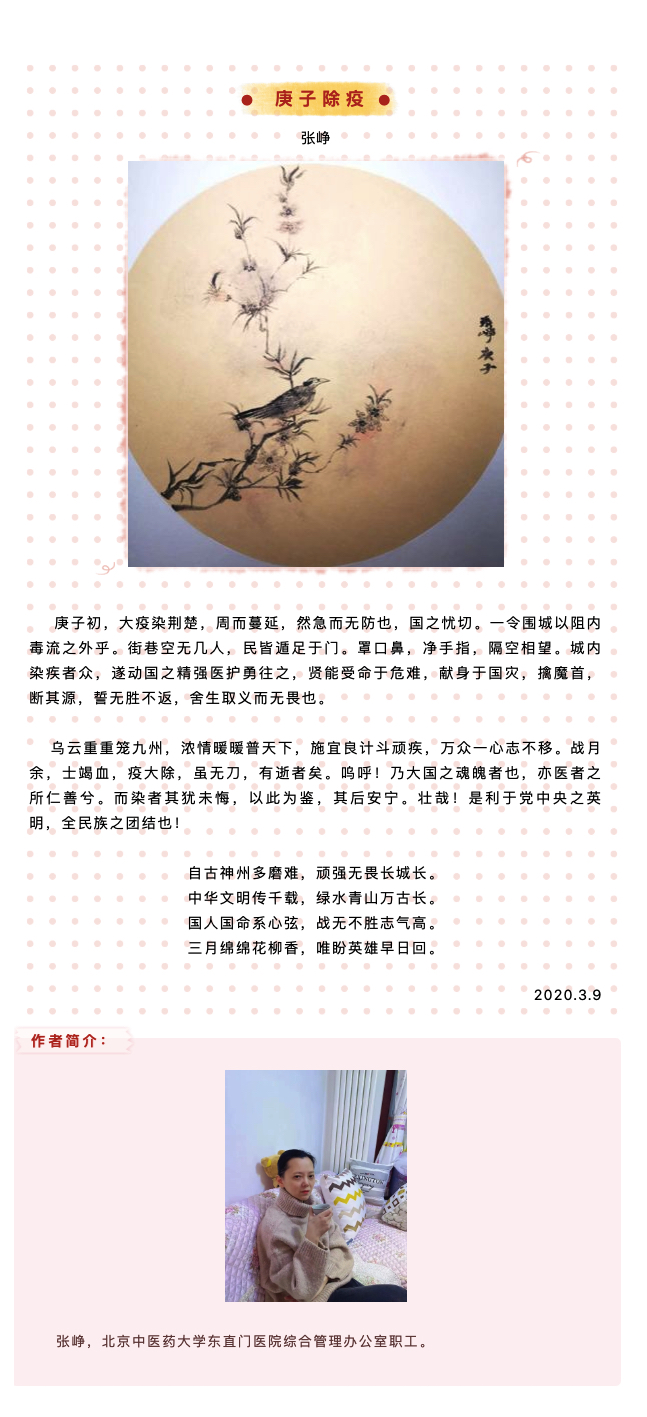 庚子除疫
张峥
张峥 庚子
庚子初，大疫染荆楚，周而蔓延，然急而无防也，国之忧切。一令围城以阻内
毒流之外乎。街巷空无几人，民皆遁足于门。罩口鼻，净手指，隔空相望。城内
染疾者众，遂动国之精强医护勇往之，贤能受命于危难，献身于国灾，擒魔首，
断其源，誓无胜不返，舍生取义而无畏也。
乌云重重笼九州，浓情暖暖普天下，施宜良计斗顽疾，万众一心志不移。战月
余，士竭血，疫大除，虽无刀，有逝者矣。呜呼！乃大国之魂魄者也，亦医者之
所仁善兮。而染者其犹未悔，以此为鉴，其后安宁。壮哉！是利于党中央之英
明，全民族之团结也！
自古神州多磨难，顽强无畏长城长。
中华文明传千载，绿水青山万古长。
国人国命系心弦，战无不胜志气高。
三月绵绵花柳香，唯盼英雄早日回。
2020.3.9
作者简介：
张峥，北京中医药大学东直门医院综合管理办公室职工。